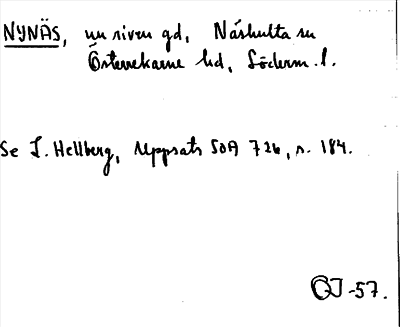 NYNÄS, nu riven gd, Näshulta sn
Österrekarne hd, Söderm. l.
Se L. Hellberg, Uppsats SOA 726, s. 184.
GJ-57.